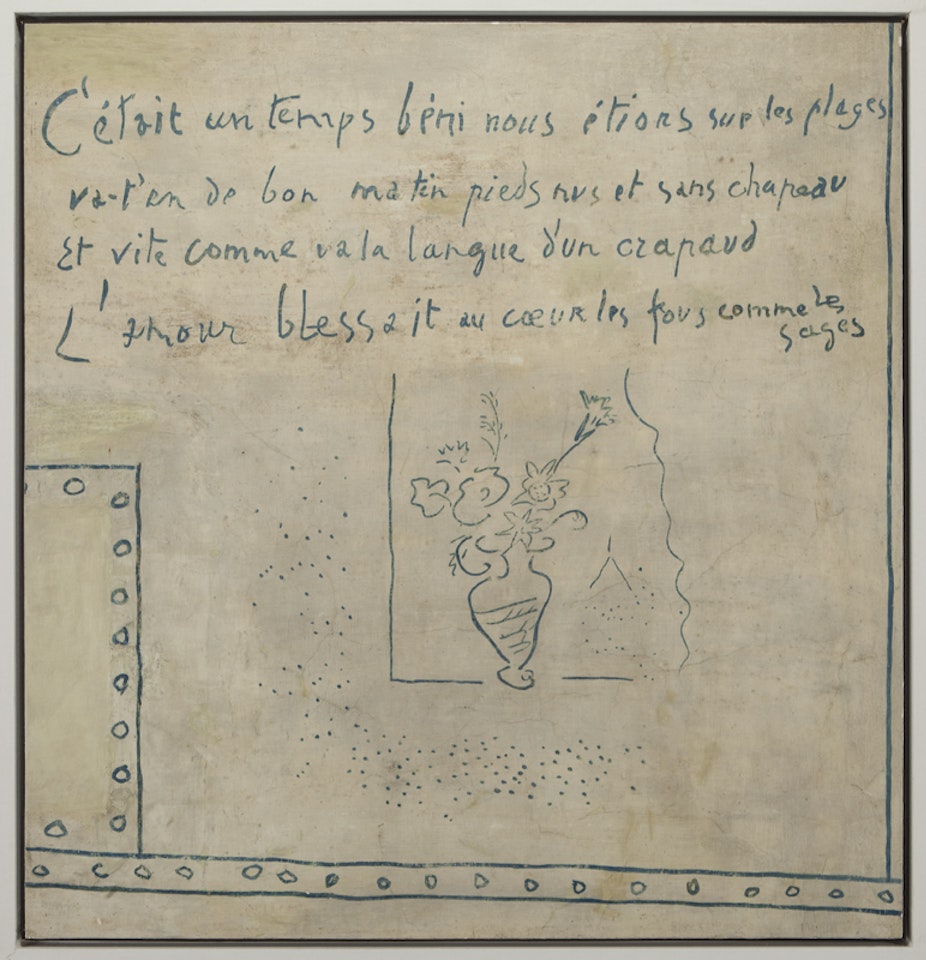 C'étoit un temps béni nous étions sur les plages
va-t'en de bon matin pieds nus et sans chapeau
Et vite comme va la langue d'un crapaud
L'amour blessait au cœur les fous comme les
sages